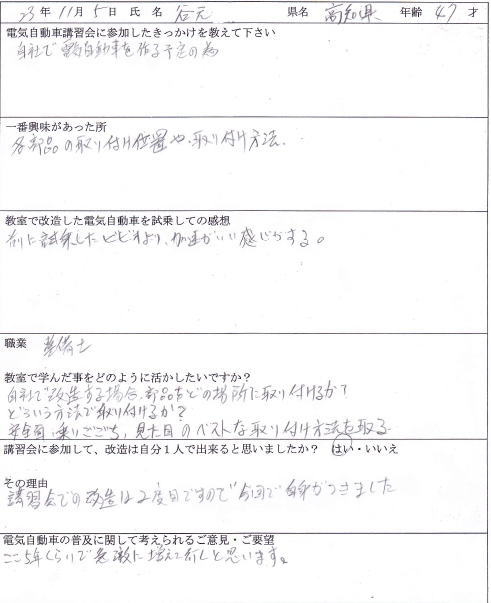 23年11月5日 氏名 谷元 県名 高知県 年齢 47才
電気自動車講習会に参加したきっかけを教えて下さい
自社で電気自動車を作る予定の為
一番興味があった所
各部品の取り付け位置や、取り付け方法.
教室で改造した電気自動車を試乗しての感想
前に試乗したビビオより、加速がいい感じがする。
職業 整備士
教室で学んだ事をどのように活かしたいですか?
自社で改造する場合、部品をどの場所に取り付けるか?
どういう方法で取り付けるか?
安全面、乗りごごち、見た目のベストな取り付け方法を取る
講習会に参加して、改造は自分1人で出来ると思いましたか? はい・いいえ
その理由
講習会での改造は2度目ですので今回で自身がつきました
電気自動車の普及に関して考えられるご意見・ご要望
ここ5年くらいで急激に増えて行くと思います。